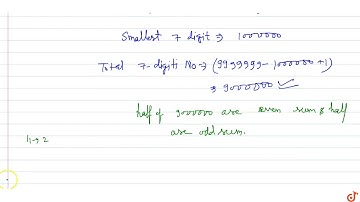 Smallest 7 digit ⇒ 1000000
Total 7-digiti No ⇒ (9999999 - 1000000 + 1)
⇒ 9000000 ✓
half of 9000000 are even sum & half
are odd sum.
doubtnut